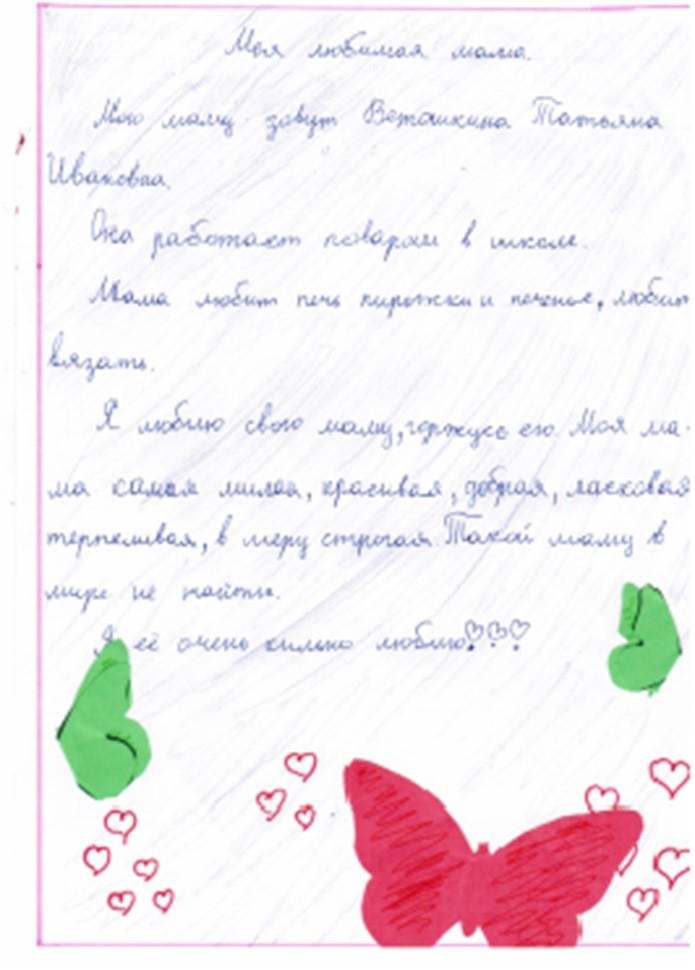 Моя любимая мама.
Мою маму зовут Ветошкина Татьяна
Ивановна.
Она работает поваром в школе.
Мама любит печь пирожки и печенье, любит
вязать.
Я люблю свою маму, горжусь ею. Моя ма-
ма самая милая, красивая, добрая, ласковая
терпеливая, в меру строгая. Такой маму в
мире не найти.
Я её очень сильно люблю!!!